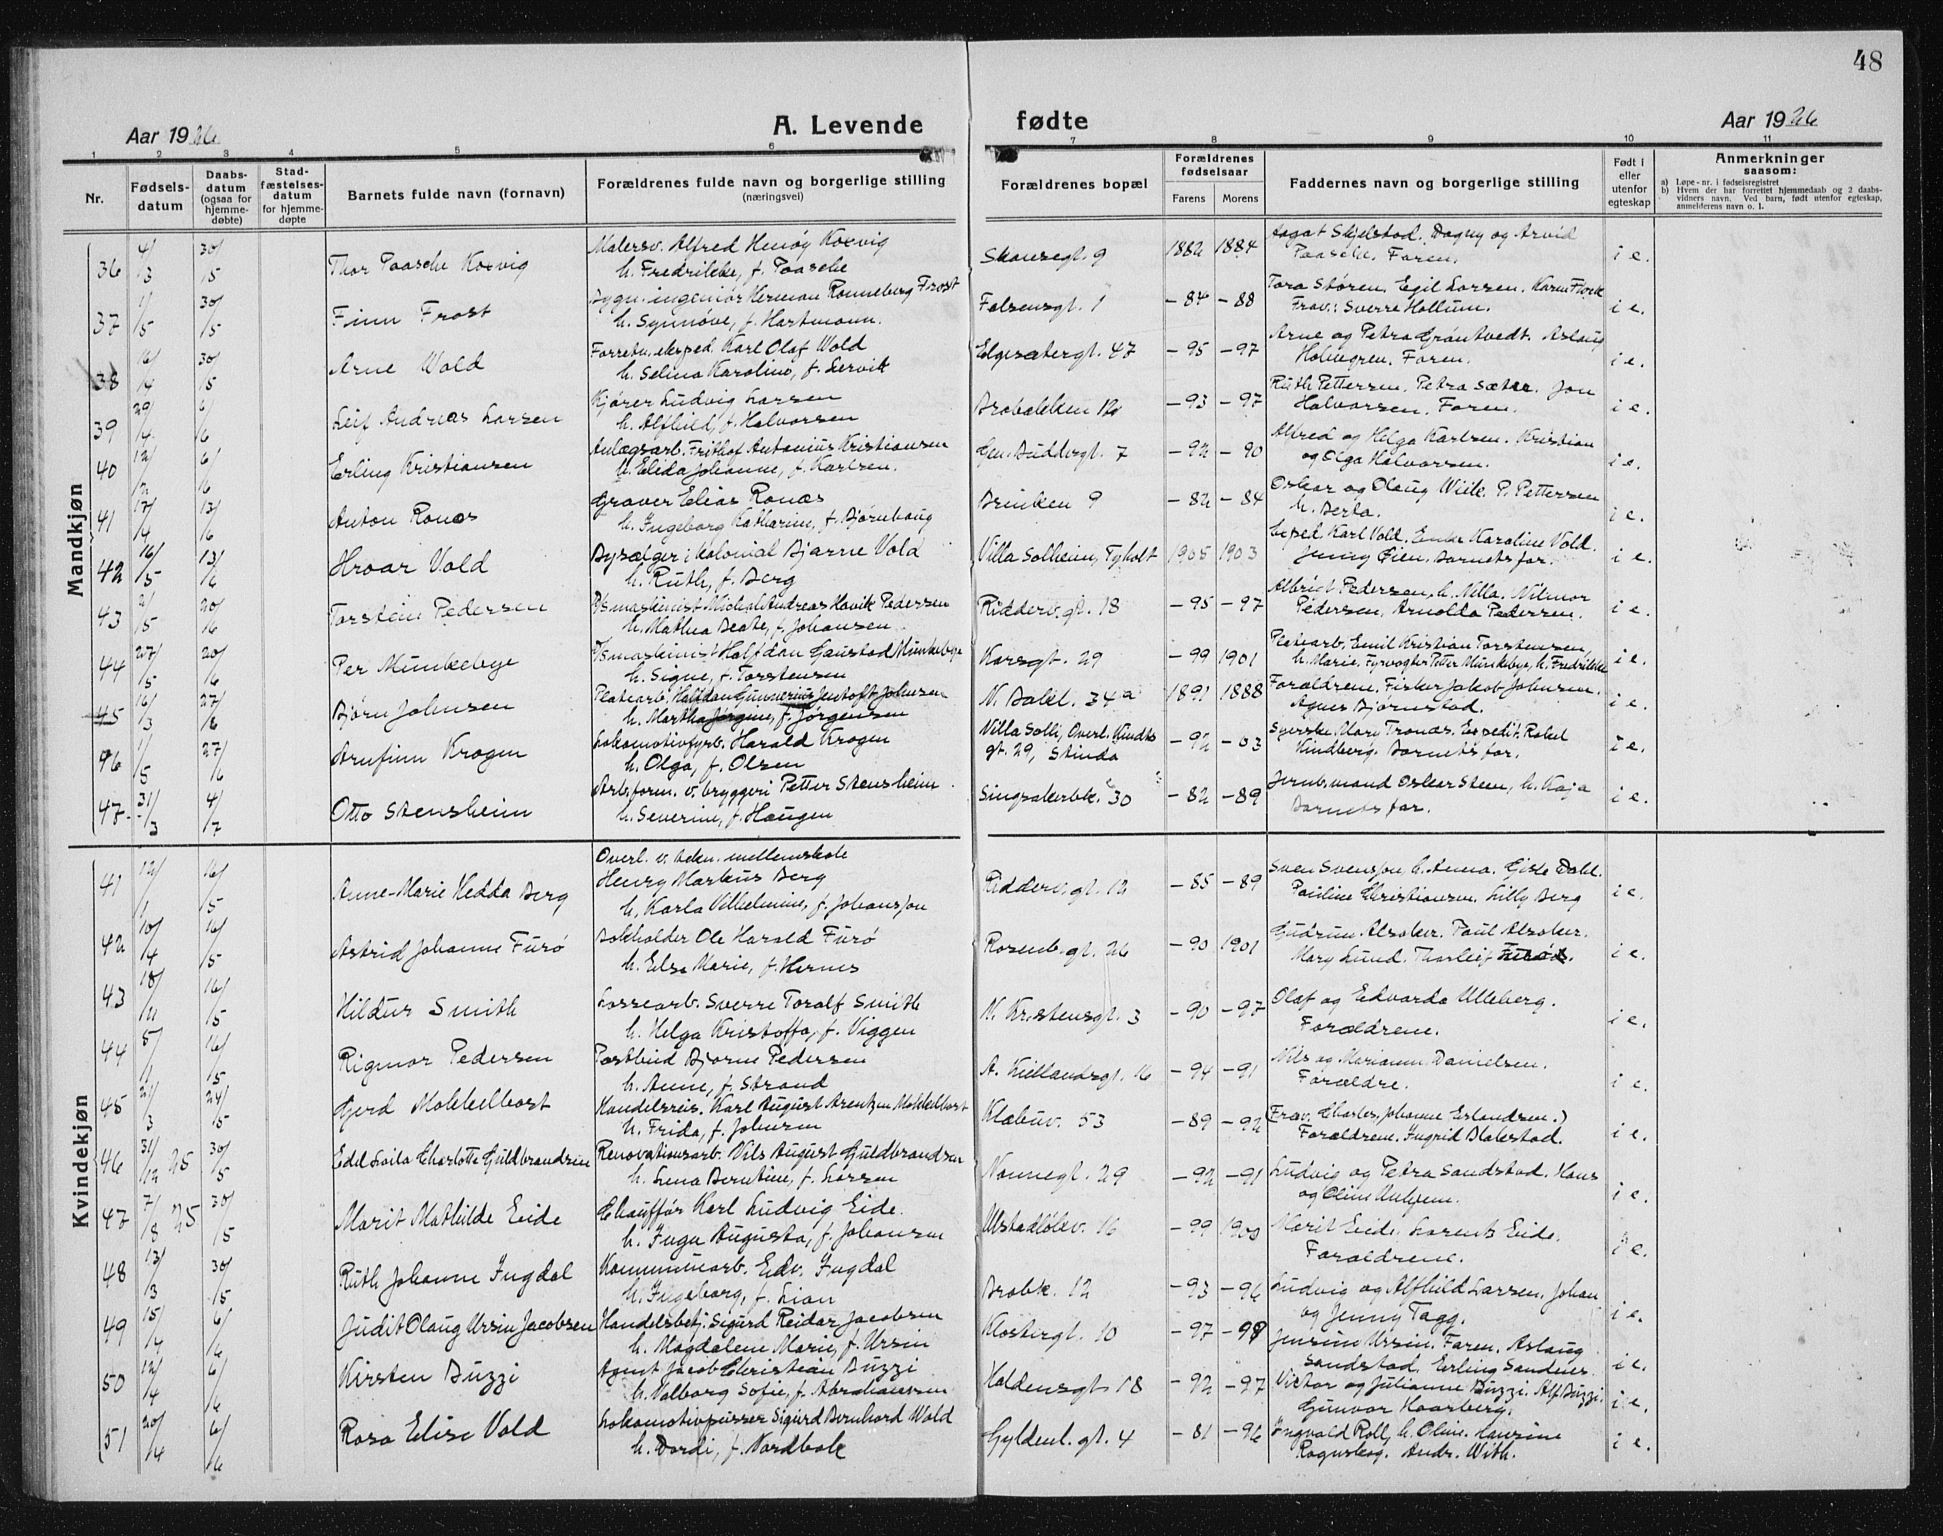 48
Aar 1926 A. Levende fødte Aar 1926
1 2 3 4 5 6 7 8 9 10 11
Nr. Fødsels-datum Daabs-datum (ogsaa for hjemme-døbte) Stad-fæstelses-datum for hjemme-døpte Barnets fulde navn (fornavn) Forældrenes fulde navn og borgerlige stilling (næringsvei) Forældrenes bopæl Forældrenes fødselsaar Farens Morens Faddernes navn og borgerlige stilling Født i eller utenfor egteskap Anmerkninger saasom:
a) Løpe-nr. i fødselsregistret
b) Hvem der har forrettet hjemmedaab og 2 daabsvidners navn. Ved barn, født utenfor egteskap, anmelderens navn o. l.
Mandkjøn
36 4/3 30/5 Thor Paasche Koxvig Malersv. Alfred Henøy Koxvig Skansegt. 9 1882 1884 Aagat Skjelstad. Dagny og Arvid i e.
h. Fredrikke, f. Paasche Paasche. Faren.
37 1/5 30/5 Finn Frost Bygn.ingeniør Herman Ronneberg Frost Falsensgt. 1 -84 -88 Tora Støren. Egil Larsen. Karen i e.
h. Synnøve, f. Hartmann. Frav.: Sverre Hollum.
38 16/4 30/5 Arne Wold Forretn.eksped. Karl Olaf Wold Elgesætergt. 47 -95 -97 Arne og Petra Grøntvedt. Aslaug i e.
h. Selma Karoline, f. Lervik Holmgren. Faren.
39 29/4 6/6 Leif Andreas Larsen Kjører Ludvig Larsen Brobakken 12 -93 -97 Ruth Pettersen. Petra Sæter. Jon i e.
h. Alfhild, f. Halvorsen Halvorsen. Faren.
40 12/2 6/6 Erling Kristiansen Anlægsarb. Frithof Antonius Kristiansen Gen. Buddesgt. 7 -92 -90 Alfred og Helga Karlsen. Kristian i e.
h. Elida Johanne, f. Karlsen. og Olga Halvorsen.
41 17/4 13/6 Anton Ronæs Graver Elias Ronæs Brinken 9 -82 -84 Oskar og Olaug Wiik. P. Pettersen i e.
h. Ingeborg Katharine, f. Bjørnhaug h. Berta.
42 16/5 13/6 Hroar Vold Bysælger i Kolonial Bjarne Vold Villa Solheim, Tyholt 1905 1903 Expd. Karl Vold. Enke Karoline Vold. i e.
h. Ruth, f. Berg Jenny Øien. Barnets far.
43 2/5 20/6 Torstein Pedersen D/Smaskinist Michal Andreas Havik Pedersen Ridderv.gt. 18 -95 -97 Albrigt Pedersen, h. Villa. Hilmar i e.
h. Mathea Beate, f. Johansen. Pedersen, Arnolda Pedersen.
44 27/5 20/6 Per Munkebye D/Smaskinist Halfdan Gaustad Munkebye Korsgt. 29 -99 1901 Platearb. Emil Kristian Torstensen, i e.
h. Signe, f. Torstensen h. Marie, Fyrvogter Petter Munkebye, h. Fredrikke
45 16/3 27/6 Bjørn Johnsen Platearb. Halfdan Gunnerius Jentoft Johnsen N. Bakl. 34a 1891 1888 Forældrene. Fisker Jakob Johnsen. i e.
h. Martha Jørgine, f. Jørgensen Agnes Bjørnstad.
46 1/5 27/6 Arnfinn Krogen Lokomotivfyrb. Harald Krogen Villa Solli, Overl. Kindts gt. 29, Strinda -92 -03 Syerske Mari Tronæs. Expedit. Rakel i e.
h. Olga, f. Olsen Kindberg. Barnets far.
47 31/3 4/7 Otto Stensheim Arb.form. v. bryggeri Petter Stensheim Singsakerbk. 30 -82 -89 Jernb.mand Oskar Steen, h. Kaja i e.
h. Severine, f. Haugen Barnets far.
Kvindekjøn
41 12/1 16/5 Anne-Marie Hedda Berg Overl. v. tekn. mellemskole
Henry Markus Berg Ridderv.gt. 12 -85 -89 Sven Svensson h. Anna. Gisle Dahl. i e.
h. Karla Vilhelmine, f. Johansson Pauline Christiansen. Lilly Berg
42 10/4 16/5 Astrid Johanne Furø Bokholder Ole Harald Furø Rosenb.gt. 26 -90 1901 Gudrun Alsaker. Paul Alsaker. i e.
h. Else Marie, f. Hernes Mary Lund. Thorleif Furø.
43 18/11 16/5 Hildur Smith Lossearb. Sverre Toralf Smith N. Kristensgt. 3 -90 -97 Olaf og Edvarda Ulleberg. i e.
h. Helga Kristoffa, f. Viggen Forældrene.
44 5/1 16/5 Rigmor Pedersen Postbud Bjarne Pedersen A. Kiellandsgt. 16 -94 -91 Nils og Mariann Danielsen. i e.
h. Anne, f. Strand Forældre.
45 21/3 24/5 Gerd Mokkelbost Handelsreis. Karl August Arentzen Mokkelbost Klæbuv. 53 -89 -92 (Frav. Charles, Johanne Erlandsen.) i e.
h. Frida, f. Johnsen Forældrene. Ingrid Blakstad.
46 31/12 25 30/5 Edel Laila Charlotte Guldbrandsen Renovationsarb. Nils August Guldbrandsen Nonnegt. 29 -92 -91 Ludvig og Petra Sandstad. Hans i e.
h. Lena Berntine, f. Larsen og Oline
47 7/8 25 30/5 Marit Mathilde Eide Chauffør Karl Ludvig Eide. Ulstadløkv. 16 -99 1900 Marit Eide. Lorents Eide. i e.
h. Inga Augusta, f. Johansen Forældrene.
48 13/3 30/5 Ruth Johanne Ingdal Kommunearb. Edv. Ingdal Brobk. 12 -93 -96 Ludvig og Alfhild Larsen. Johan i e.
h. Ingeborg, f. Lian og Jenny Tagg.
49 15/4 6/6 Judit Olaug Ursin Jacobsen Handelsbetj. Sigurd Reidar Jacobsen Klostergt. 10 -97 -98 Jensine Ursin. Faren. Aslaug i e.
h. Magdalene Marie, f. Ursin Sandstad. Erling Sandnes.
50 12/4 6/6 Kirsten Buzzi Agent Jacob Christian Buzzi Haldensgt. 18 -92 -97 Viktor og Julianne Buzzi. Alf Buzzi. i e.
h. Valborg Sofie, f. Abrahamsen Gunvor Haarberg.
51 20/4 6/6 Rosa Elise Vold Lokomotivpusser Sigurd Bernhard Wold Gyldenl.gt. 4 -81 -96 Ingvald Roll, h. Oline. Laurine i e.
h. Dordi, f. Nordbok Rognskog. Andr. With.